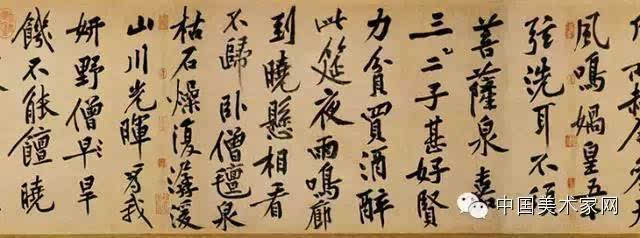 風鳴媧皇五
弦洗耳不須
菩薩泉嘉
三二子甚好賢
力貧買酒醉
此筵夜雨鳴廊
到曉懸相看
不歸卧僧氈泉
枯石燥復潺湲
山川光暉為我
妍野僧早旱
饑不能饘曉
中国美术家网